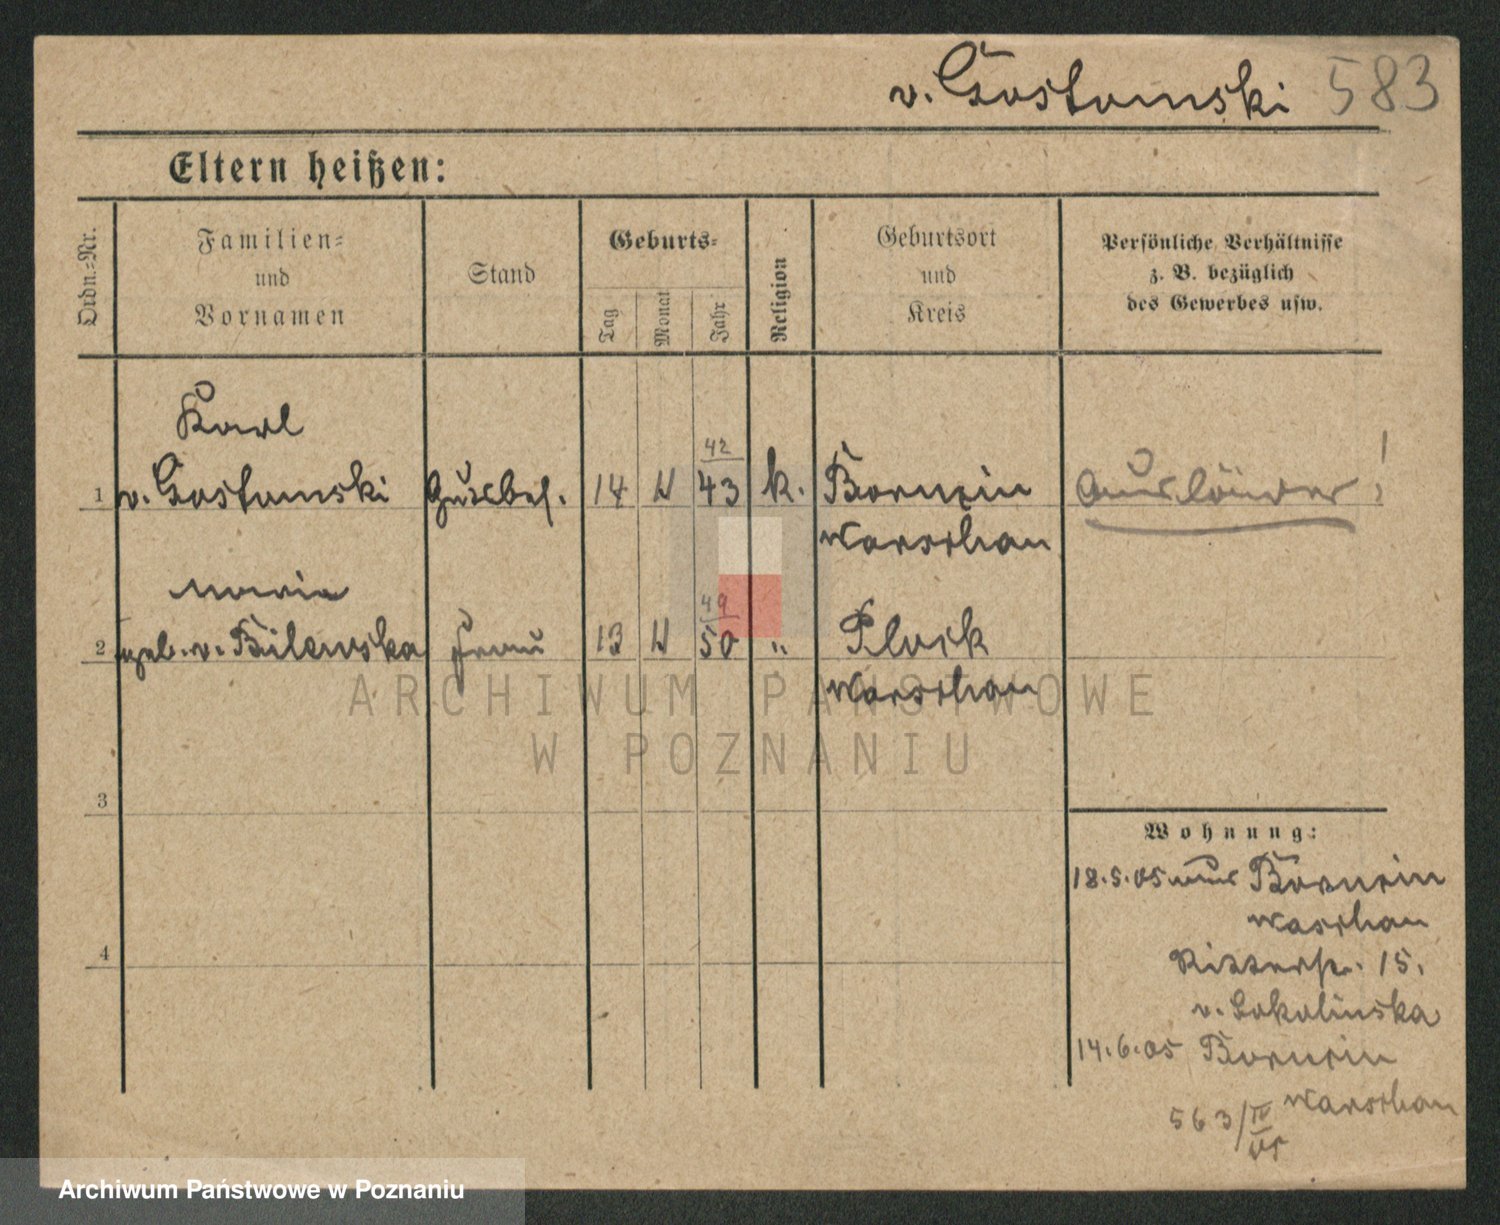 v. Gostomski 583
Eltern heißen:
Ordn.-Nr.
Familien-
und
Vornamen
Stand
Geburts-
Tag
Monat
Jahr
Religion
Geburtsort
und
Kreis
Persönliche Verhältnisse
z. B. bezüglich
des Gewerbes usw.
Karl
42
1 v. Gostomski Gutsbes. 14 43 k. Ausländer!
Warschau
Maria
49
2 geb. v. Bilewska Frau 13 50 " Plock
Warschau
ARCHIWUM PAŃSTWOWE
W POZNANIU
3
Wohnung:
18.5.05 aus
Waschau
4
Ritterstr. 15.
v. Sokolinska
14.6.05
Warschau
563/IV
05
Archiwum Państwowe w Poznaniu